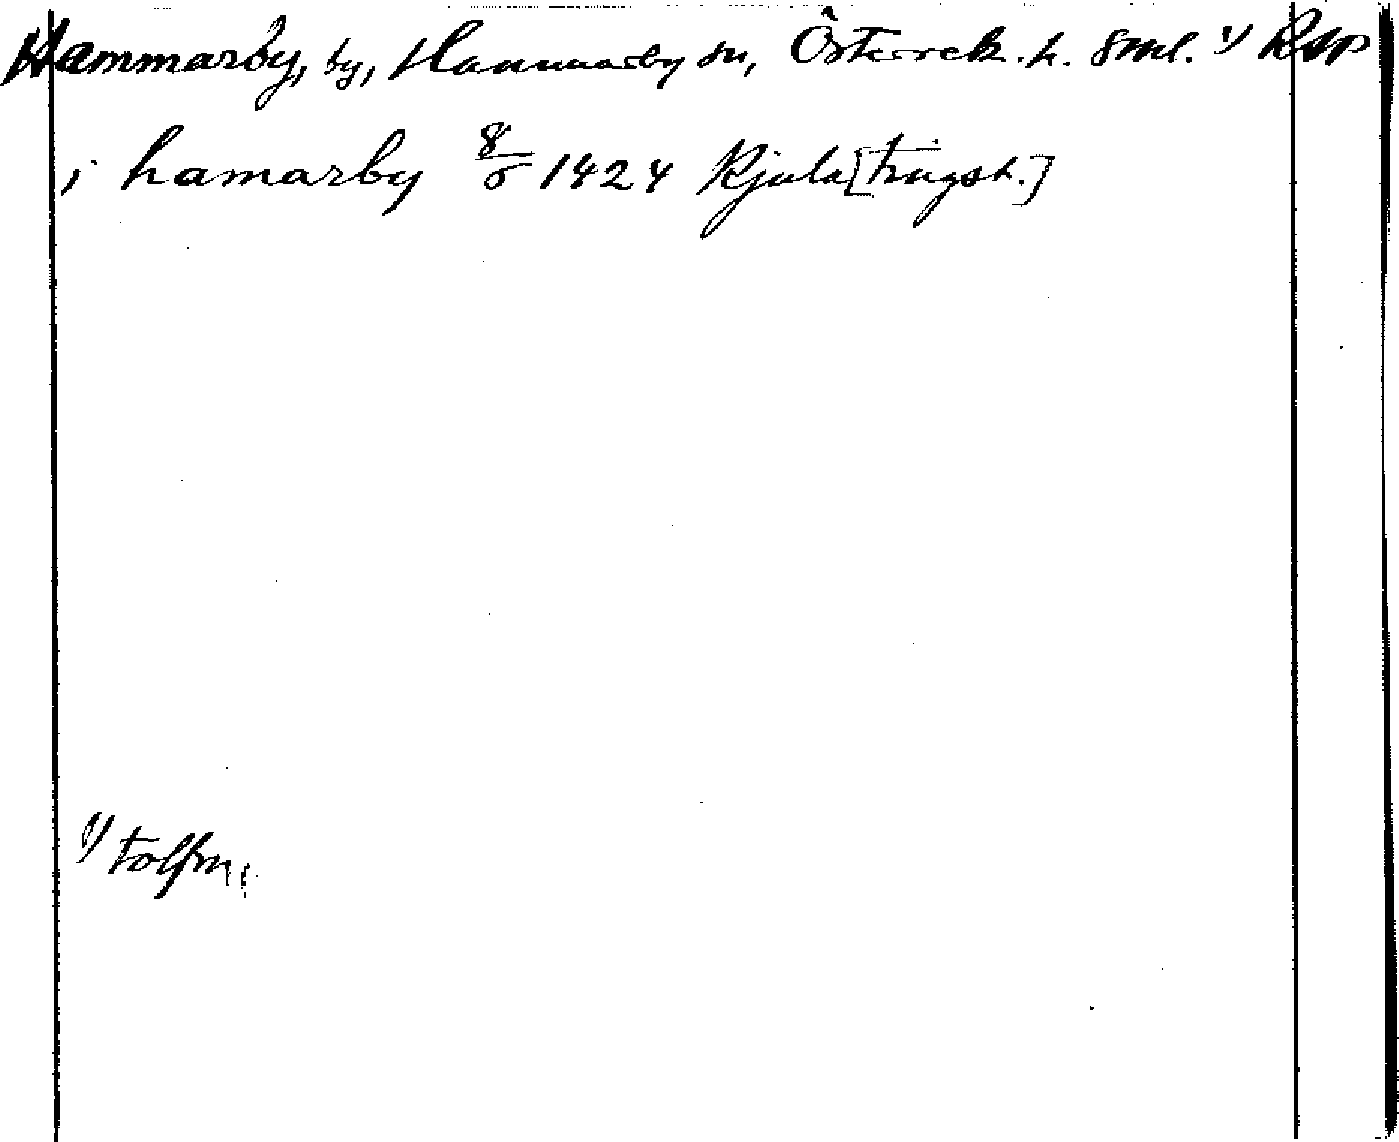 Hammarby, by, Hammarby sn, Österrek. h. Sml. 1) RAp
i hamarby 8/5 1424 Kjula [tingst.]
1) tolfm.